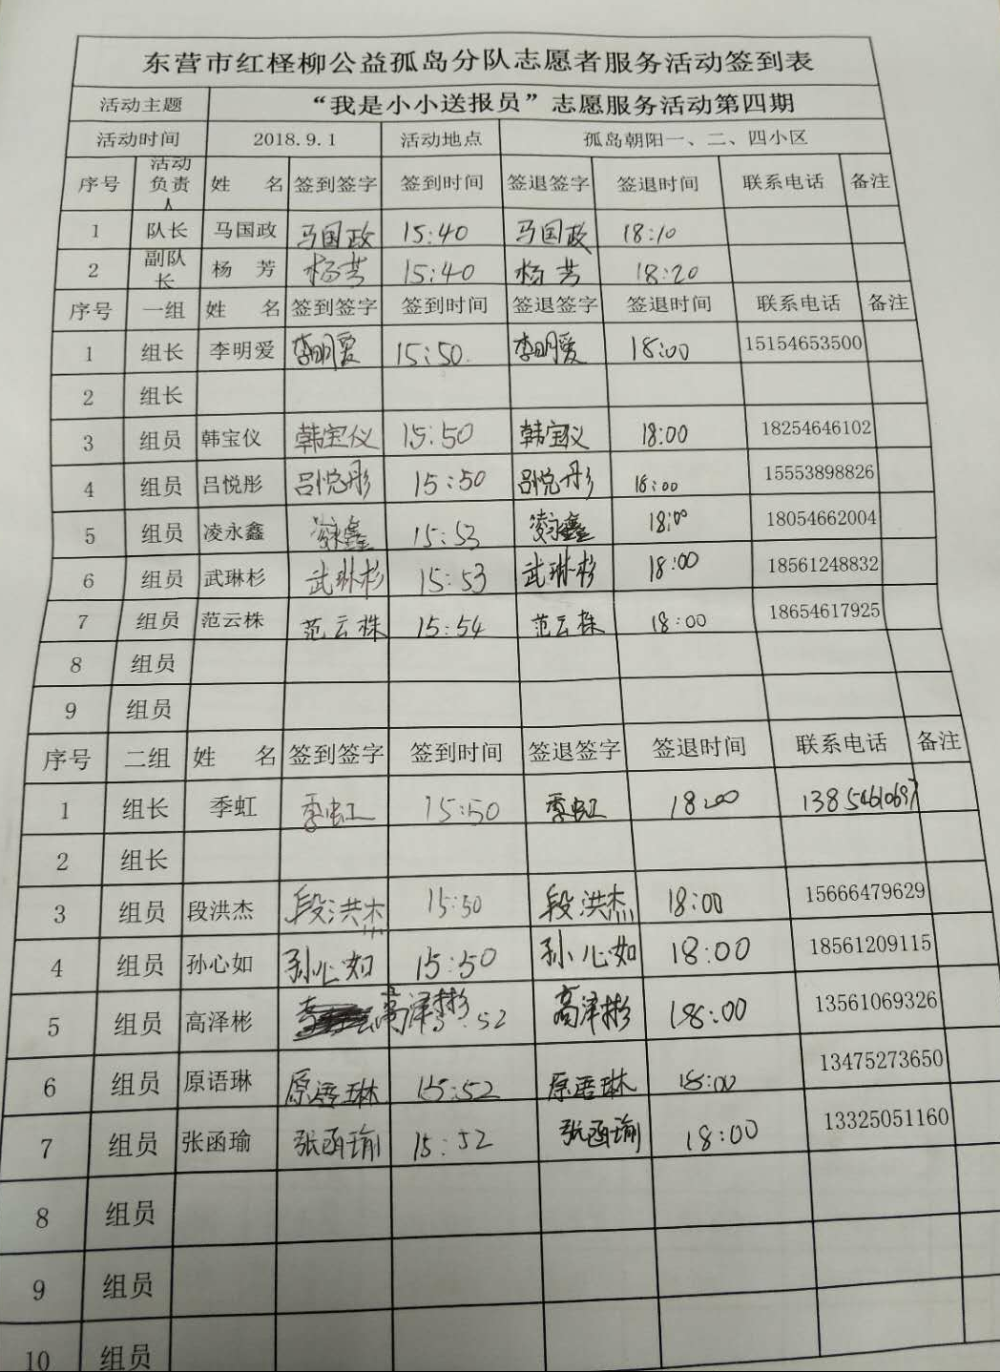 东营市红柽柳公益孤岛分队志愿者服务活动签到表
活动主题 “我是小小送报员”志愿服务活动第四期
活动时间 2018.9.1 活动地点 孤岛朝阳一、二、四小区
序号 活动负责人 姓 名 签到签字 签到时间 签退签字 签退时间 联系电话 备注
1 队长 马国政 马国政 15:40 马国政 18:10
2 副队长 杨 芳 杨芳 15:40 杨芳 18:20
序号 一组 姓 名 签到签字 签到时间 签退签字 签退时间 联系电话 备注
1 组长 李明爱 李明爱 15:50 李明爱 18:00 15154653500
2 组长
3 组员 韩宝仪 韩宝仪 15:50 韩宝仪 18:00 18254646102
4 组员 吕悦彤 吕悦彤 15:50 吕悦彤 18:00 15553898826
5 组员 凌永鑫 凌永鑫 15:53 凌永鑫 18:00 18054662004
6 组员 武琳杉 武琳杉 15:53 武琳杉 18:00 18561248832
7 组员 范云株 范云株 15:54 范云株 18:00 18654617925
8 组员
9 组员
序号 二组 姓 名 签到签字 签到时间 签退签字 签退时间 联系电话 备注
1 组长 季虹 季虹 15:50 季虹 18:00 13854610697
2 组长
3 组员 段洪杰 段洪杰 15:50 段洪杰 18:00 15666479629
4 组员 孙心如 孙心如 15:50 孙心如 18:00 18561209115
5 组员 高泽彬 高泽彬 15:52 高泽彬 18:00 13561069326
6 组员 原语琳 原语琳 15:52 原语琳 18:00 13475273650
7 组员 张函瑜 张函瑜 15:52 张函瑜 18:00 13325051160
8 组员
9 组员
10 组员